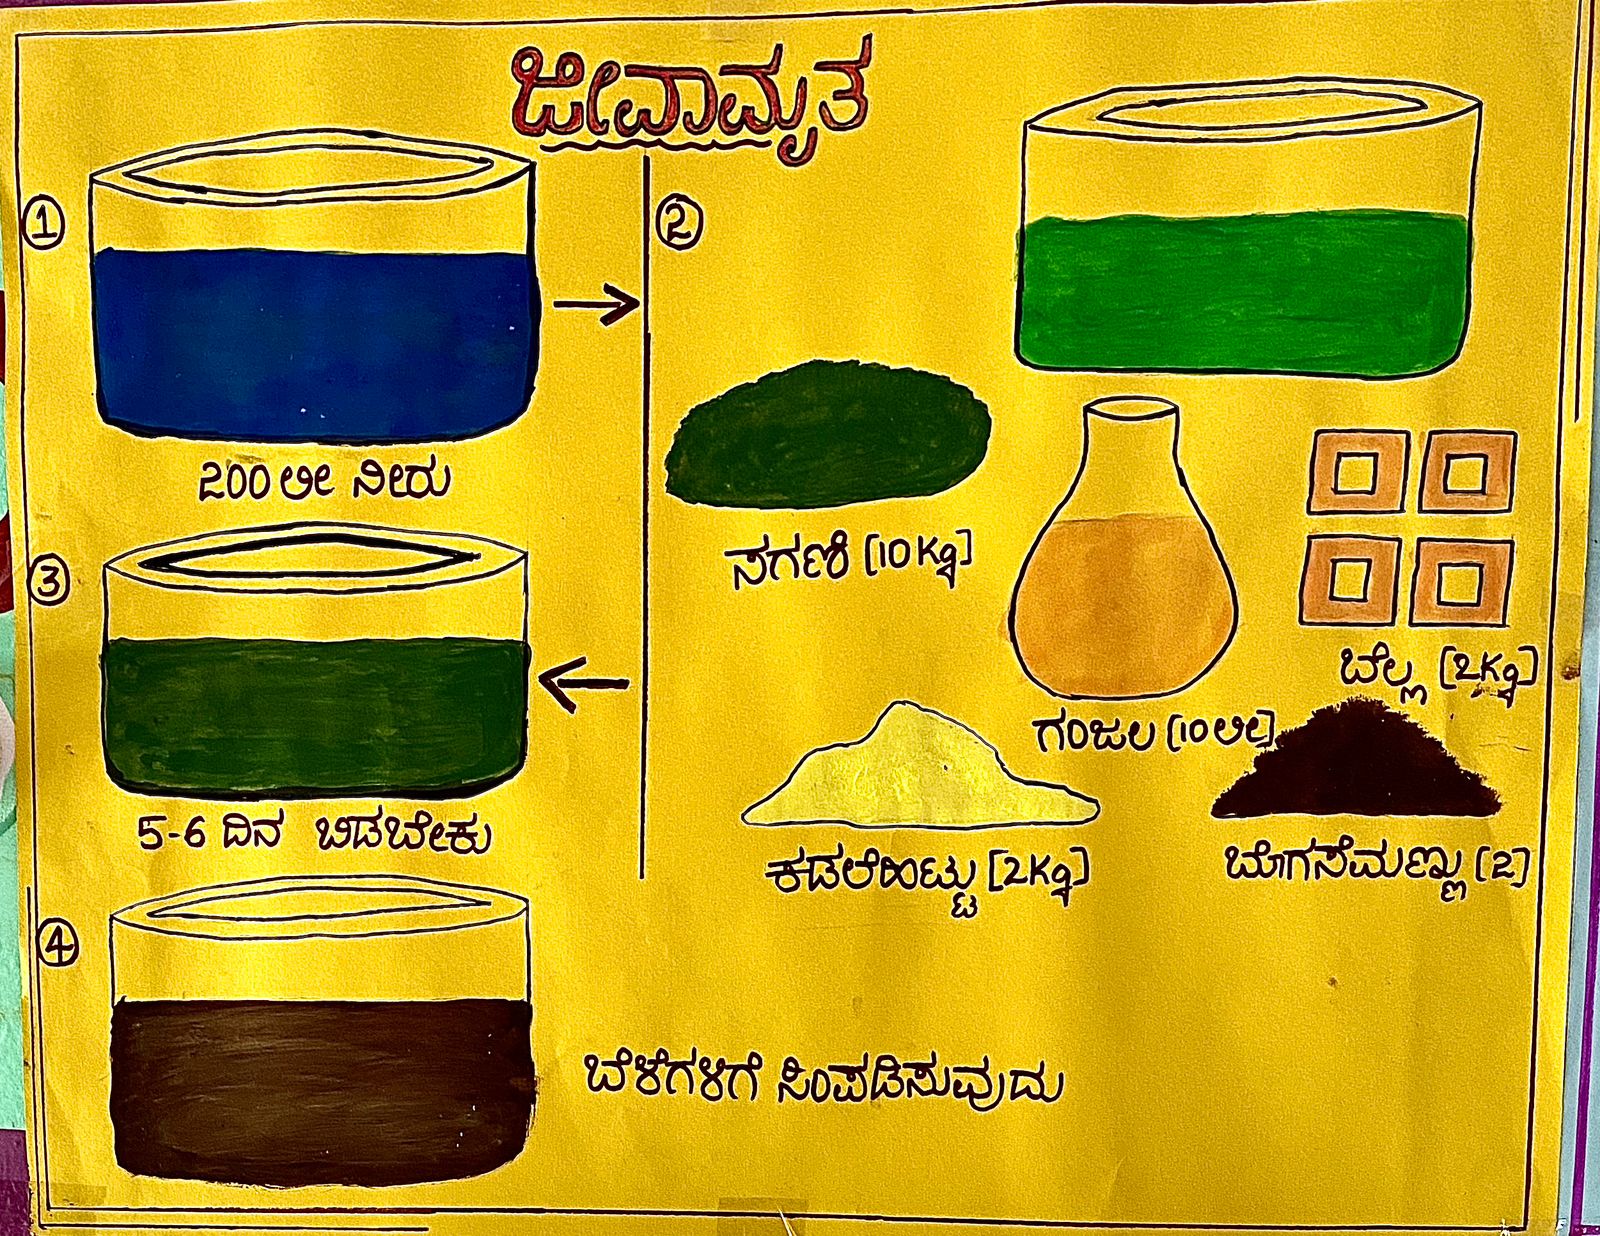 ಜೀವಾಮೃತ
1
200 ಲೀ ನೀರು
2
ಸಗಣಿ [10 Kg]
ಗಂಜಲ [10 ಲೀ]
ಬೆಲ್ಲ [2Kg]
ಕಡಲೆಹಿಟ್ಟು [2Kg]
ಬೊಗಸೆಮಣ್ಣು [2]
3
5-6 ದಿನ ಬಿಡಬೇಕು
4
ಬೆಳೆಗಳಿಗೆ ಸಿಂಪಡಿಸುವುದು